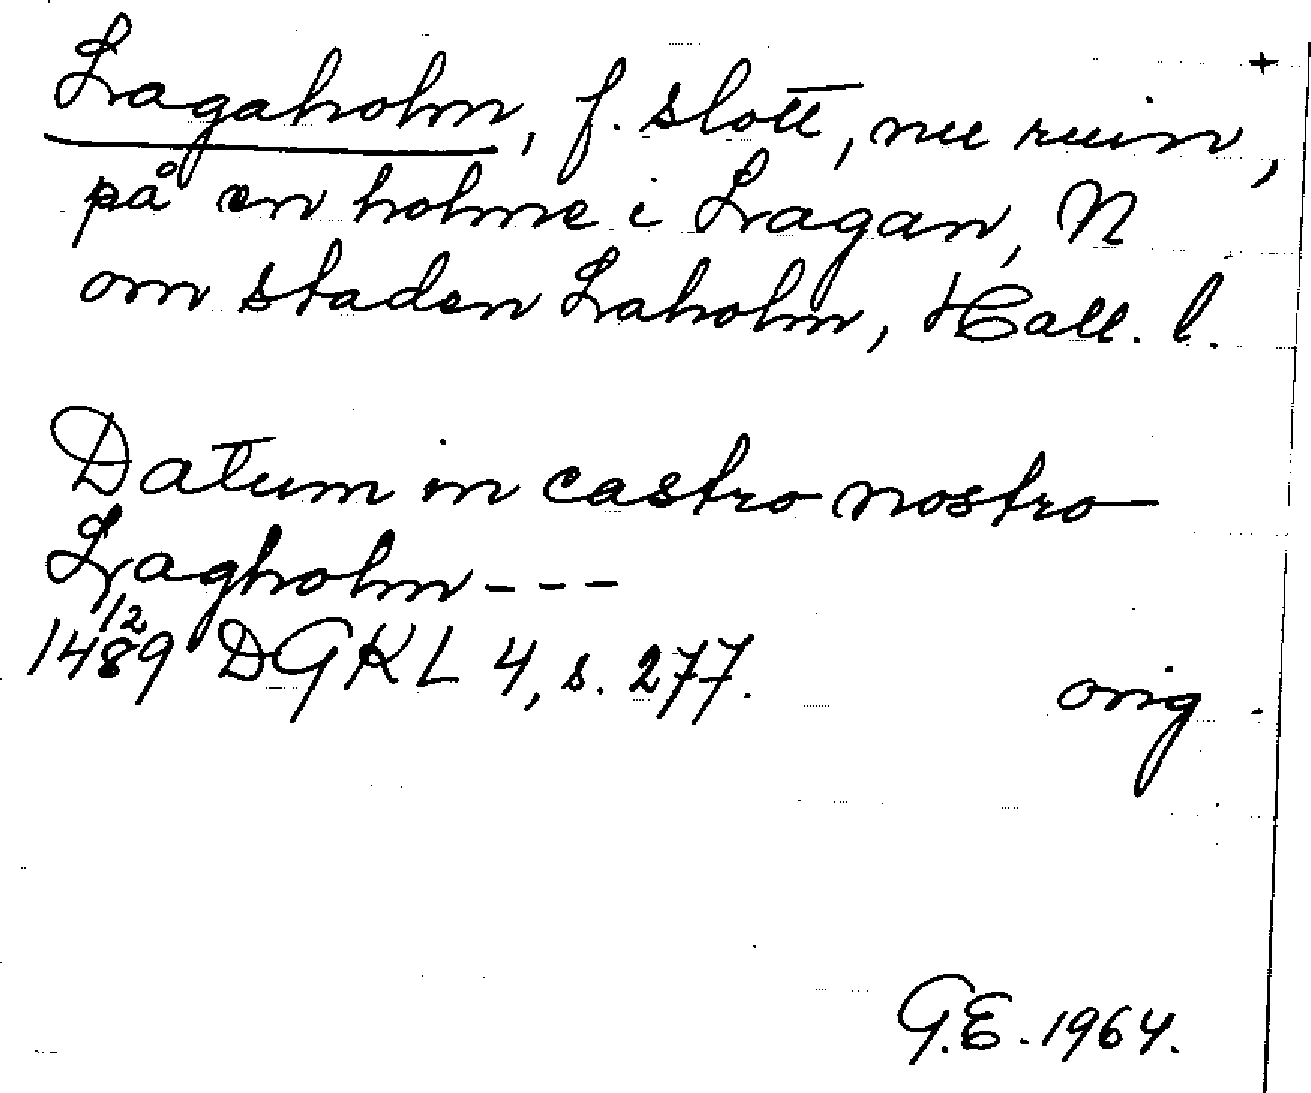 +
Lagaholm, f. slott, nu ruin,
på en holme i Lagan, N
om staden Laholm, Hall. l.
Datum in castro nostro
Lagholm - - -
12
1489 DGKL 4, s. 277. orig
G.E. 1964.